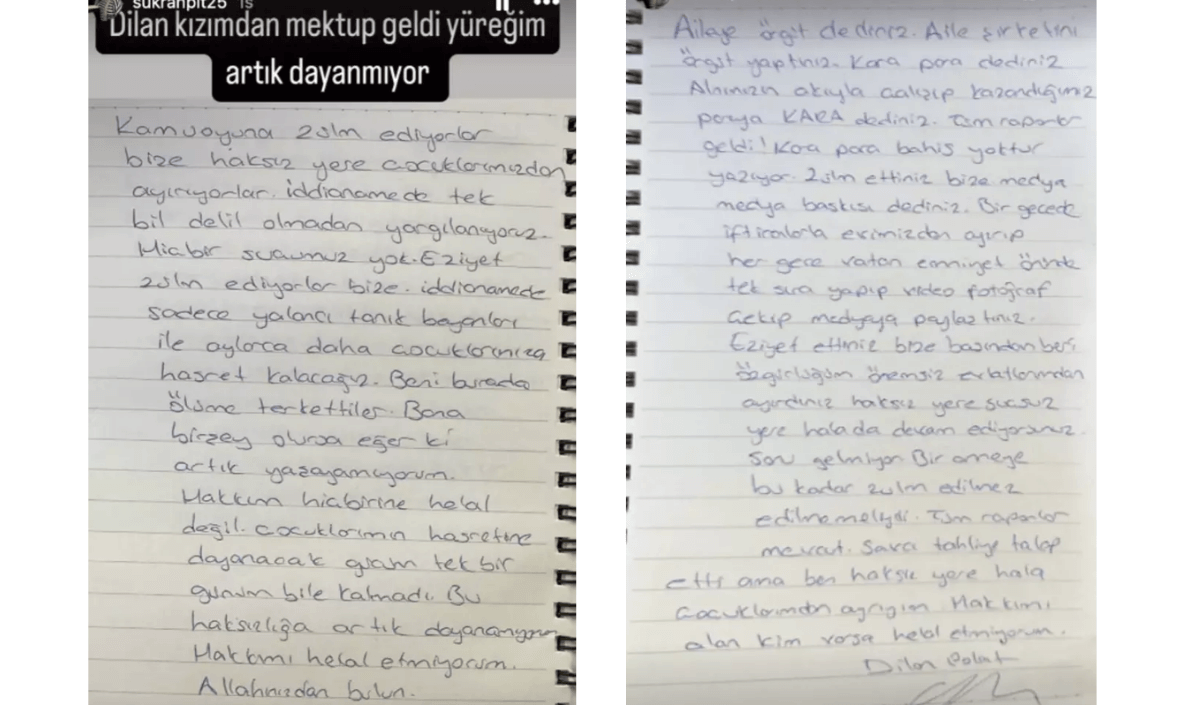 sukranpit25 1s
Dilan kızımdan mektup geldi yüreğim
artık dayanmıyor
Kamuoyuna zulm ediyorlar
bize haksız yere çocuklarımızdan
ayırıyorlar. iddianamede tek
bil delil olmadan yargılanıyoruz.
Hiçbir suçumuz yok. Eziyet
zulm ediyorlar bize. iddianamede
sadece yalancı tanık beyanları
ile aylarca daha çocuklarımıza
hasret kalacağız. Beni burada
ölüme terkettiler. Bana
birşey olursa eğer ki
artık yaşayamıyorum.
Hakkım hiçbirine helal
değil. Çocuklarımın hasretine
dayanacak gücüm tek bir
günüm bile kalmadı. Bu
haksızlığa artık dayanamıyorum
Hakkımı helal etmiyorum.
Allahınızdan bulun.
Aileye örgüt dediniz. Aile şirketini
örgüt yaptınız. Kara para dediniz
Alnımızın akıyla çalışıp kazandığımız
paraya KARA dediniz. Tüm raporlar
geldi! Kara para bahis yoktur
yazıyor. Zulm ettiniz bize medya
medya baskısı dediniz. Bir gecede
iftiralarla evimizden ayırıp
her gece vatan emniyet önünde
tek sıra yapıp video fotoğraf
Çekip medyaya paylaştınız.
Eziyet ettiniz bize başından beri
özgürlüğüm önemsiz evlatlarımdan
ayırdınız haksız yere suçsuz
yere halada devam ediyorsunuz.
Son gelmiyor Bir anneye
bu kadar zulm edilmez
edilmemeliydi. Tüm raporlar
mevcut. Savcı tahliye talep
etti ama ben haksız yere hala
Çocuklarımdan ayrıyım Hakkımı
alan kim varsa helal etmiyorum.
Dilan Polat